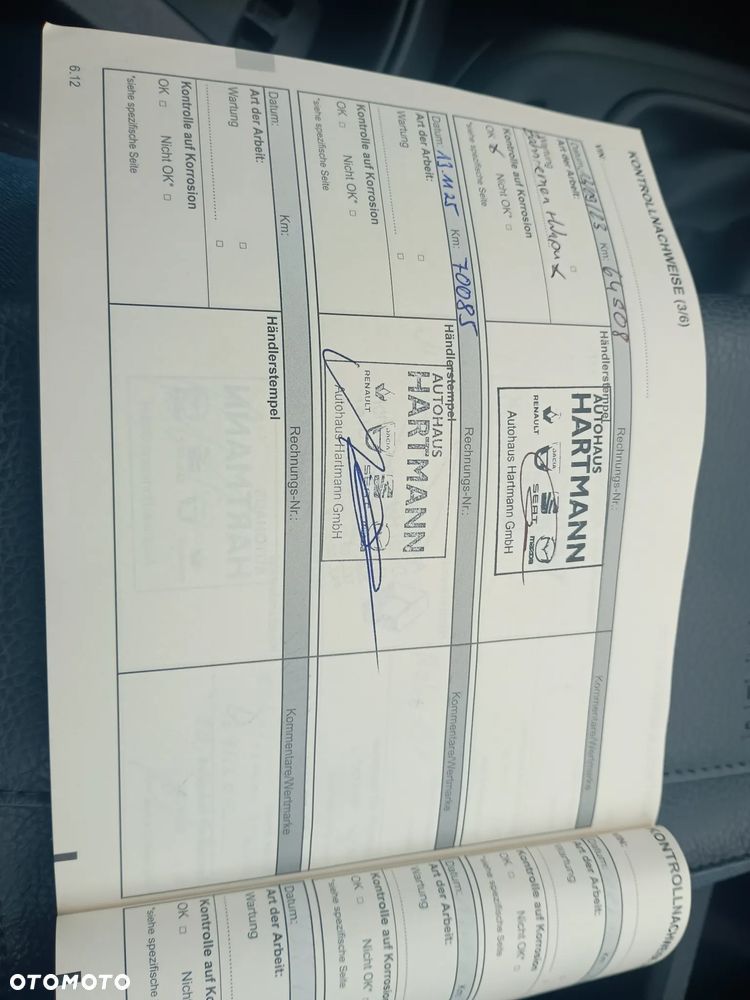 KONTROLLNACHWEISE (3/6)
VIN:
Datum: Km: 64508
Rechnungs-Nr.:
Kommentare/Wertmarke
Art der Arbeit:
Wartung
Kontrolle auf Korrosion
OK X Nicht OK*
*siehe spezifische Seite
Händlerstempel
AUTOHAUS
HARTMANN
RENAULT DACIA SEAT mazda
Autohaus Hartmann GmbH
Datum: 13.11.25 Km: 70085
Rechnungs-Nr.:
Kommentare/Wertmarke
Art der Arbeit:
Wartung
Kontrolle auf Korrosion
OK Nicht OK*
*siehe spezifische Seite
Händlerstempel
AUTOHAUS
HARTMANN
RENAULT DACIA SEAT
Autohaus Hartmann GmbH
Datum: Km:
Rechnungs-Nr.:
Kommentare/Wertmarke
Art der Arbeit:
Wartung
Kontrolle auf Korrosion
OK Nicht OK*
*siehe spezifische Seite
Händlerstempel
6.12
KONTROLLNACHWE
VIN:
Datum:
Art der Arbeit:
Wartung
Kontrolle auf Korrosion
OK Nicht OK*
*siehe spezifische Seite
Datum:
Art der Arbeit:
Wartung
Kontrolle auf Korrosion
OK Nicht OK*
*siehe spezifische Seite
Datum:
Art der Arbeit:
Wartung
Kontrolle auf Ko
OK Nicht OK*
*siehe spezifische
OTOMOTO